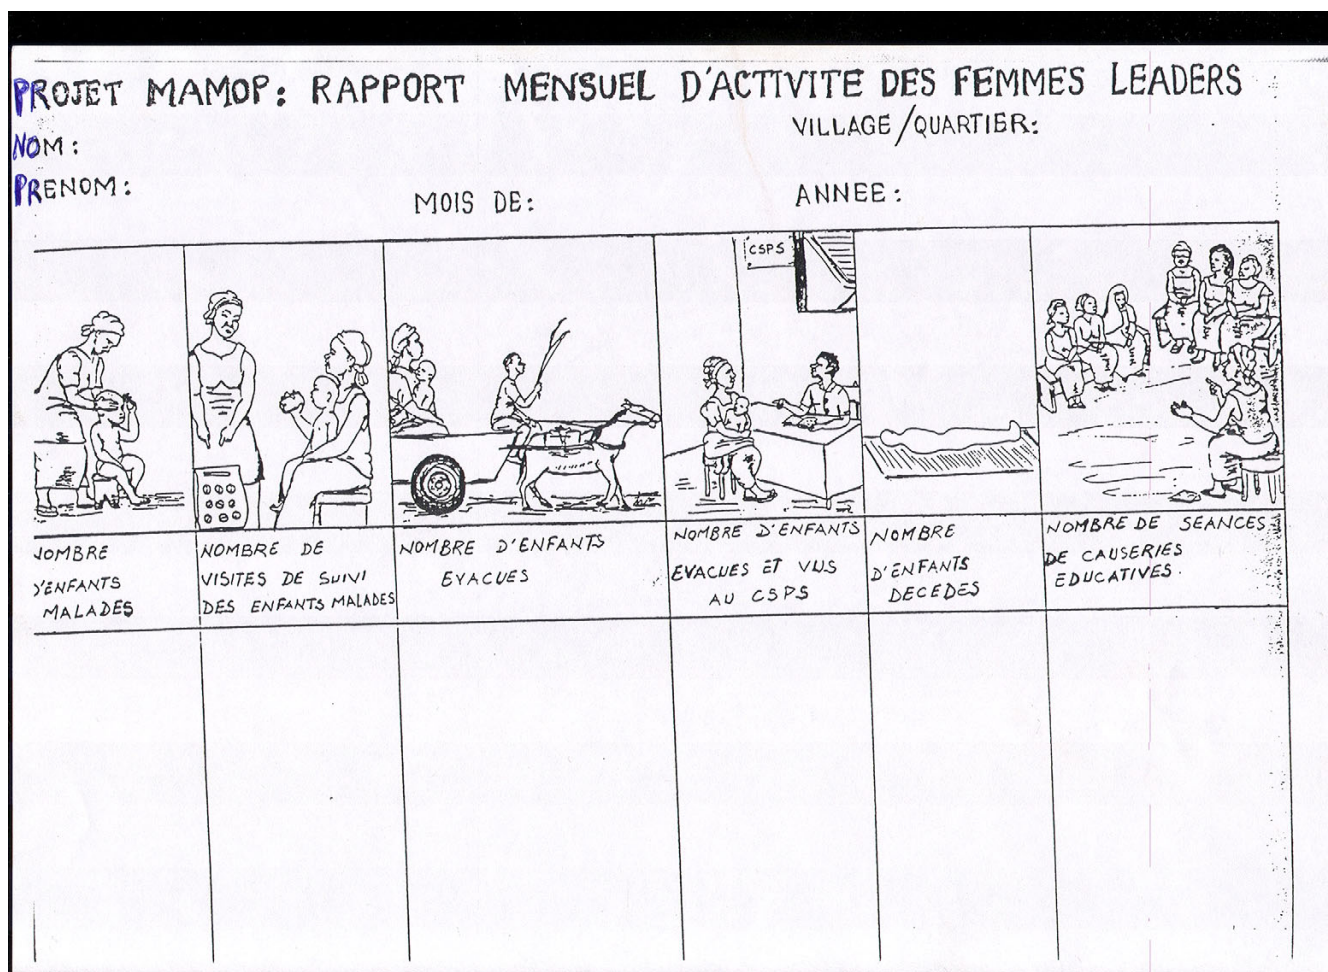 PROJET MAMOP: RAPPORT MENSUEL D'ACTIVITE DES FEMMES LEADERS
NOM:
VILLAGE/QUARTIER:
PRENOM:
MOIS DE:
ANNEE:
CSPS
NOMBRE
D'ENFANTS
MALADES
NOMBRE DE
VISITES DE SUIVI
DES ENFANTS MALADES
NOMBRE D'ENFANTS
EVACUES
NOMBRE D'ENFANTS
EVACUES ET VUS
AU CSPS
NOMBRE
D'ENFANTS
DECEDES
NOMBRE DE SEANCES
DE CAUSERIES
EDUCATIVES.